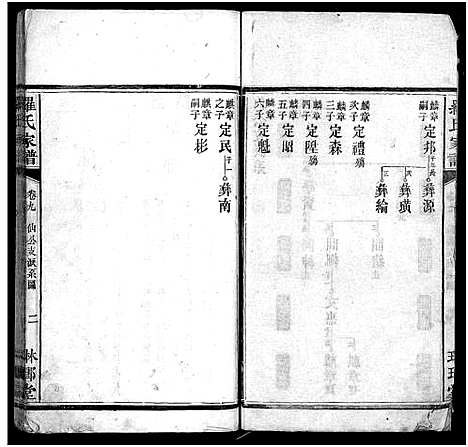 羅氏家譜
麟章長子 定邦 子三
長 彝源
次 彝璜
三 彝綸
麟章次子 定禮 殤
麟章三子 定森
麟章四子 定陞 殤
麟章五子 定昭
麟章六子 定魁
麒章之子 定民 子一 彝南
麒章嗣子 定彬
羅氏家譜
卷九
仙公支派系圖
二